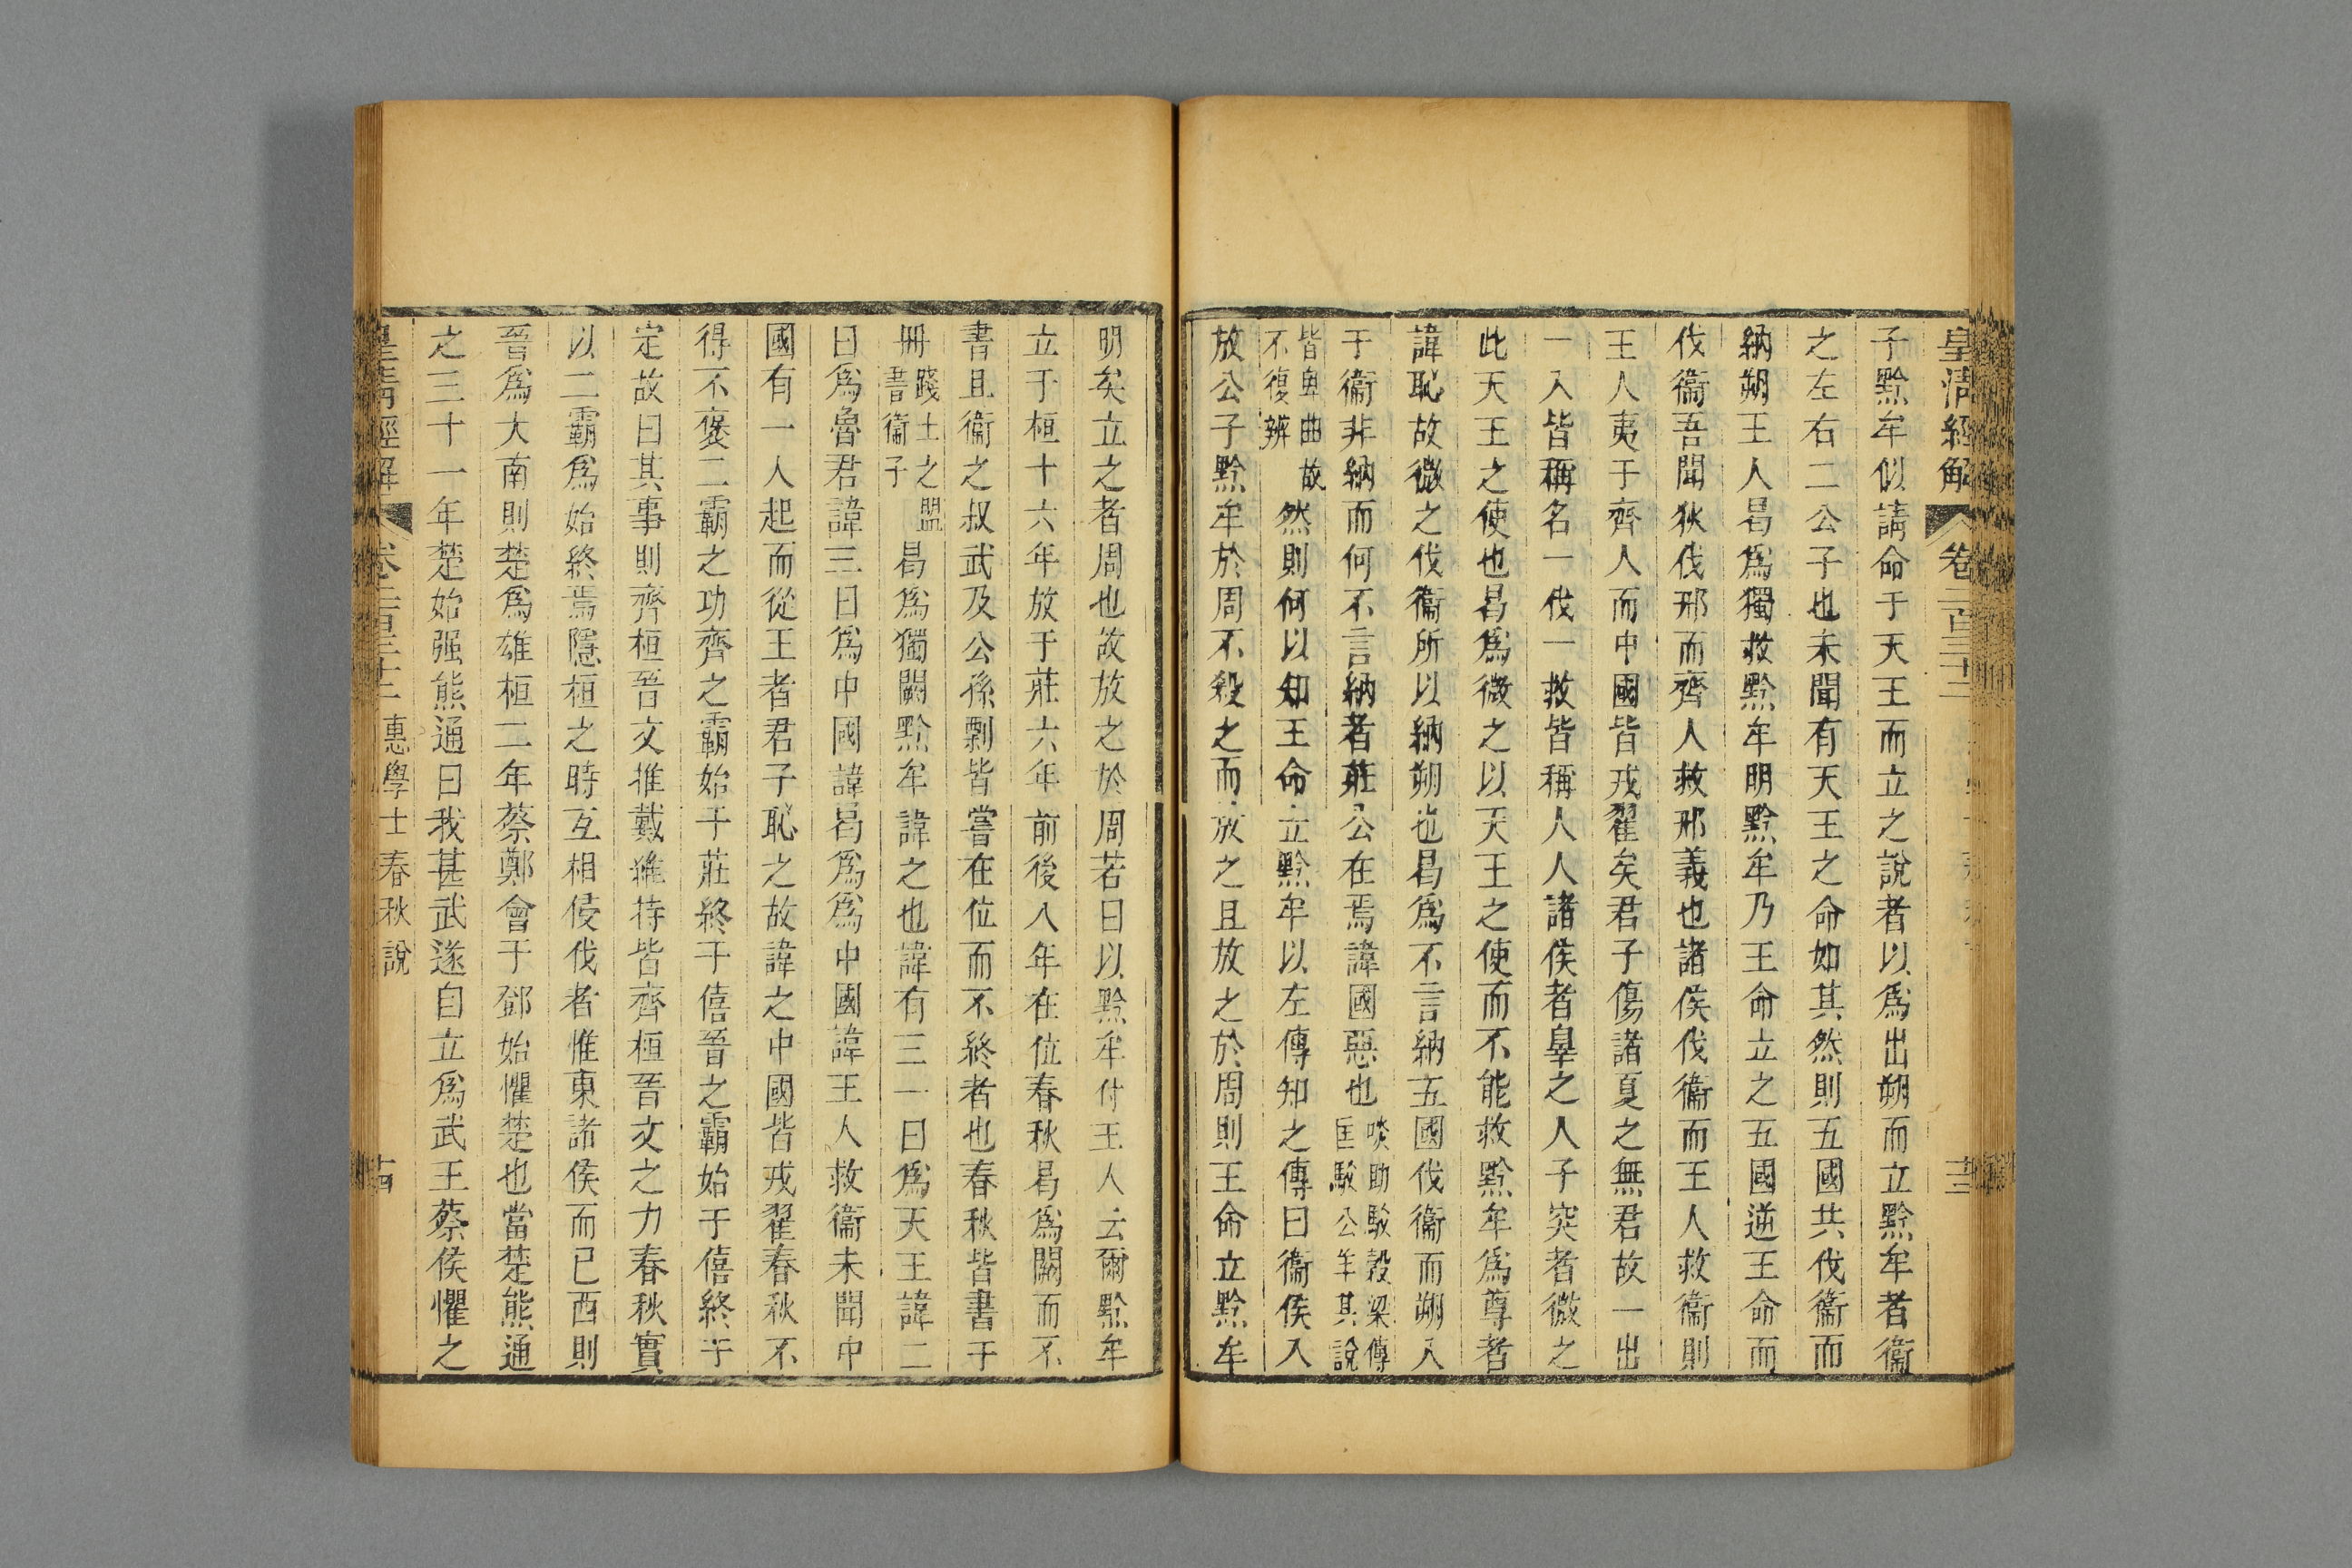 皇清經解 卷二百三十二 十三
子黔牟似請命于天王而立之說者以爲出朔而立黔牟者衞
之左右二公子也未聞有天王之命如其然則五國共伐衞而
納朔王人曷爲獨救黔牟明黔牟乃王命立之五國逆王命而
伐衞吾聞狄伐邢而齊人救邢義也諸侯伐衞而王人救衞則
王人夷于齊人而中國皆戎翟矣君子傷諸夏之無君故一出
一入皆稱名一伐一救皆稱人人諸侯者辠之人子突者微之
此天王之使也曷爲微之以天王之使而不能救黔牟爲尊者
諱恥故微之伐衞所以納朔也曷爲不言納五國伐衞而朔入
于衞非納而何不言納者莊公在焉諱國惡也啖助駁穀梁傳
匡駁公羊其說
皆卑曲故
不復辨然則何以知王命立黔牟以左傳知之傳曰衞侯入
放公子黔牟於周不殺之而放之且放之於周則王命立黔牟
明矣立之者周也故放之於周若曰以黔牟付王人云爾黔牟
立于桓十六年放于莊六年前後八年在位春秋曷爲闕而不
書且衞之叔武及公孫剽皆嘗在位而不終者也春秋皆書于
冊踐土之盟
書衞子曷爲獨闕黔牟諱之也諱有三一曰爲天王諱二
曰爲魯君諱三曰爲中國諱曷爲爲中國諱王人救衞未聞中
國有一人起而從王者君子恥之故諱之中國皆戎翟春秋不
得不褒二霸之功齊之霸始于莊終于僖晉之霸始于僖終于
定故曰其事則齊桓晉文推戴維持皆齊桓晉文之力春秋實
以二霸爲始終焉隱桓之時互相侵伐者惟東諸侯而已西則
晉爲大南則楚爲雄桓二年蔡鄭會于鄧始懼楚也當楚熊通
之三十一年楚始强熊通曰我甚武遂自立爲武王蔡侯懼之
皇清經解 卷二百三十二 惠學士春秋說 十四